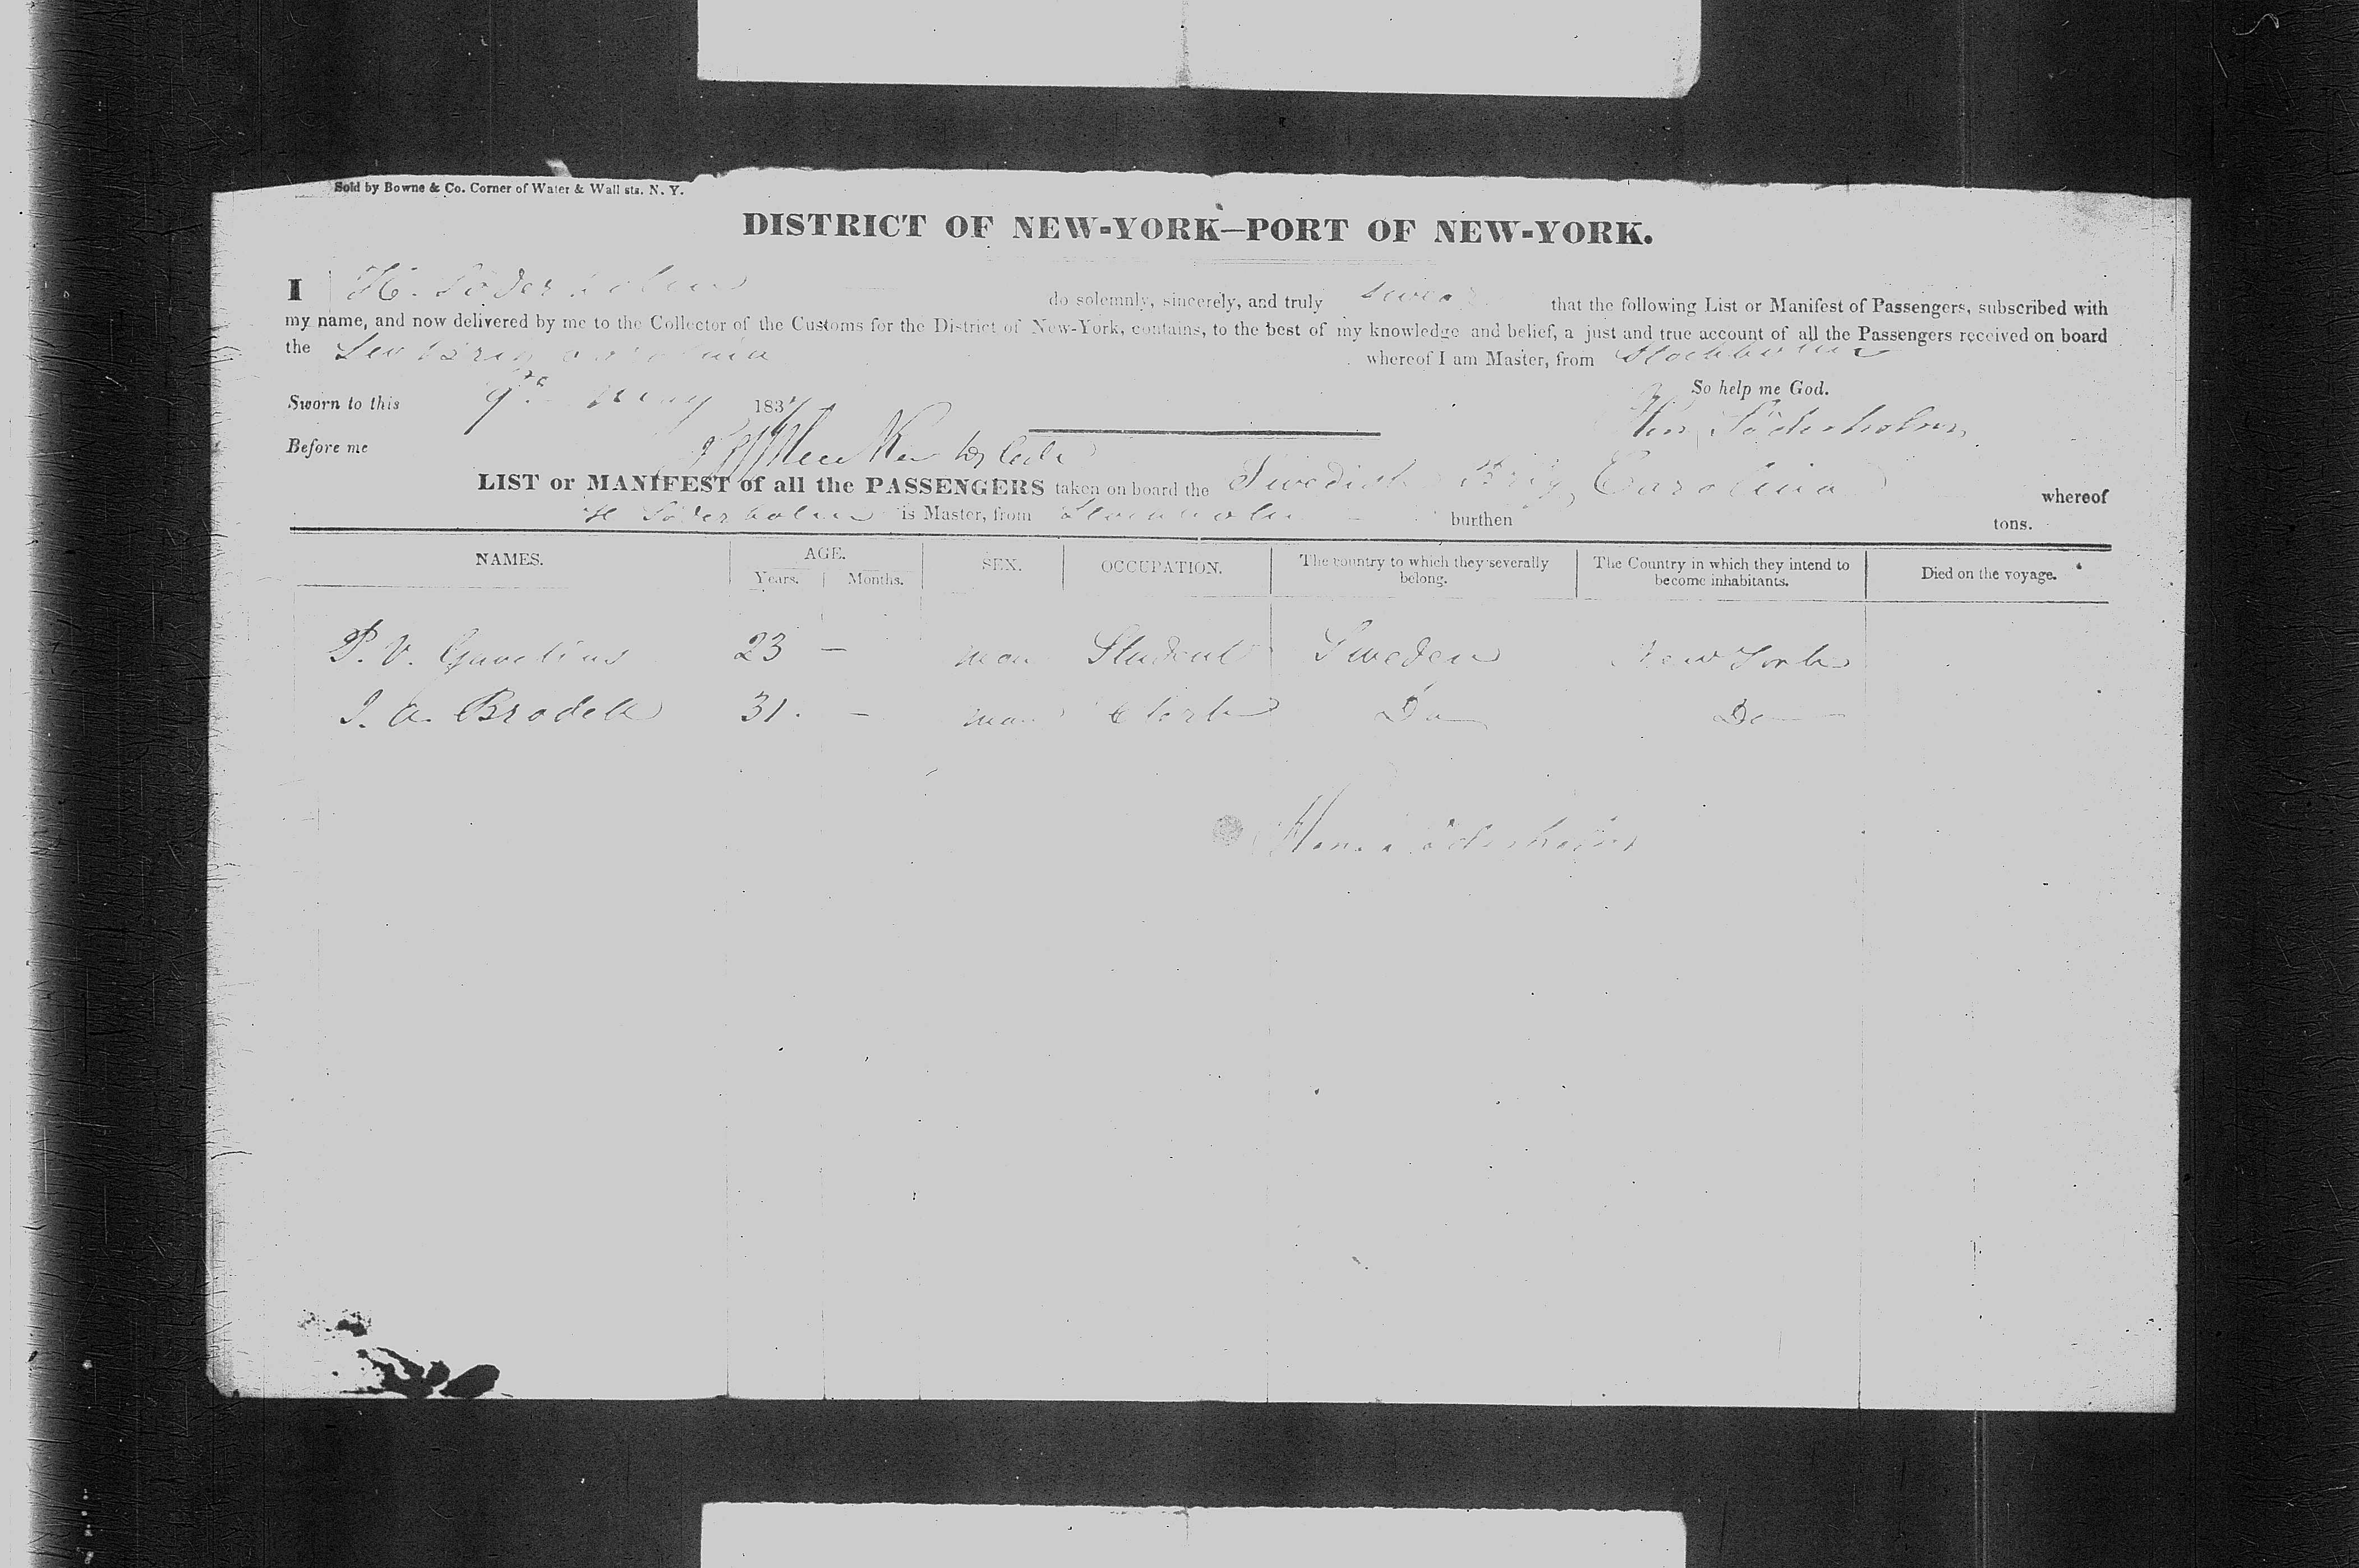 Sold by Bowne & Co. Corner of Water & Wall sts. N. Y.
DISTRICT OF NEW-YORK—PORT OF NEW-YORK.
I H. Söderholm do solemnly, sincerely, and truly swear that the following List or Manifest of Passengers, subscribed with
my name, and now delivered by me to the Collector of the Customs for the District of New-York, contains, to the best of my knowledge and belief, a just and true account of all the Passengers received on board
the Carolina whereof I am Master, from Stockholm
So help me God.
Sworn to this 9th May 183
Söderholm
Before me
LIST or MANIFEST of all the PASSENGERS taken on board the Swedish Brig Carolina whereof
H Söderholm is Master, from Stockholm burthen tons.
NAMES. AGE. SEX. OCCUPATION. The country to which they severally belong. The Country in which they intend to become inhabitants. Died on the voyage.
Years. Months.
P. V. 23 — man Student Sweden New York
J. A. Brodell 31. — man Clerk Do Do
Söderholm